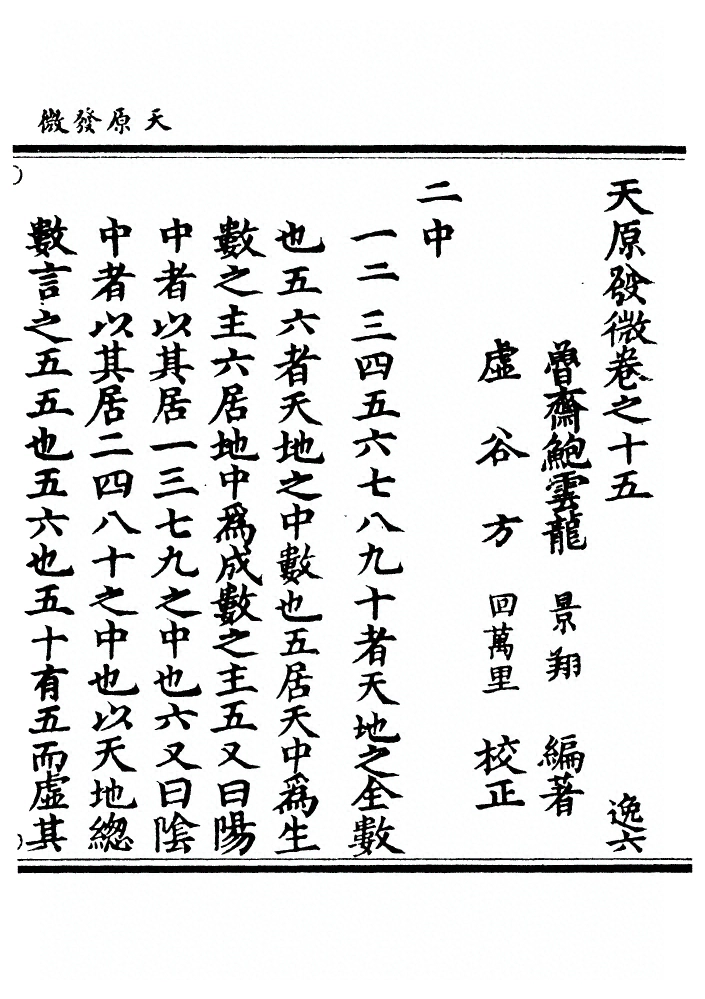 天原發微
天原發微卷之十五 逸六
魯齋鮑雲龍 景翔 編著
虛谷方 回萬里 校正
二中
一二三四五六七八九十者天地之全數
也五六者天地之中數也五居天中爲生
數之主六居地中爲成數之主五又曰陽
中者以其居一三七九之中也六又曰陰
中者以其居二四八十之中也以天地緫
數言之五五也五六也五十有五而虛其